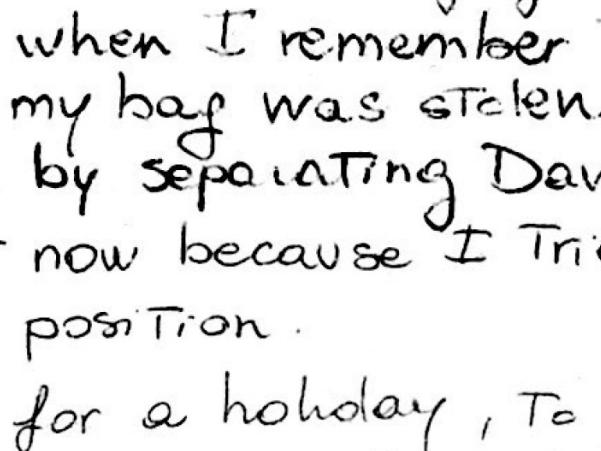 when I remember
my bag was stolen.
by sepainting Dav
now because I Trie
position.
for a holiday, To